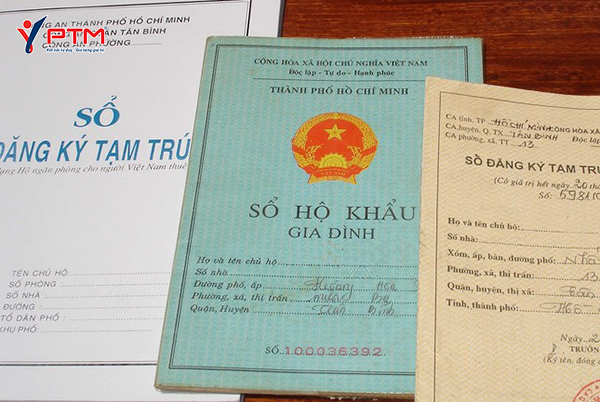 PTM
CÔNG AN THÀNH PHỐ HỒ CHÍ MINH
TÂN BÌNH
CÔNG AN PHƯỜNG
SỔ
ĐĂNG KÝ TẠM TRÚ
Hộ ngăn phòng cho người Việt Nam thuê
TÊN CHỦ HỘ:
SỐ PHÒNG :
SỐ NHÀ :
ĐƯỜNG :
TỔ DÂN PHỐ :
KHU PHỐ :
CỘNG HÒA XÃ HỘI CHỦ NGHĨA VIỆT NAM
Độc lập - Tự do - Hạnh phúc
THÀNH PHỐ HỒ CHÍ MINH
SỔ HỘ KHẨU
GIA ĐÌNH
Họ và tên chủ hộ
Số nhà
Đường phố, ấp
Phường, xã, thị trấn
Quận, Huyện Tân Bình
SỐ 100036392
CA tỉnh, TP HỒ CHÍ MINH CỘNG HÒA XÃ
CA huyện, Q, TX TÂN BÌNH Độc lập
CA phường, xã, TT 13
SỔ ĐĂNG KÝ TẠM TRÚ
(Có giá trị hết ngày 20 thá
Số:
Họ và tên chủ hộ:
Số nhà:
Xóm, ấp, bản, đường phố:
Phường, xã, thị trấn: 13
Quận, huyện, thị xã: Tân
Tỉnh, thành phố: Hồ
Ngày 2
TRƯỞNG
(Ký tên, đóng